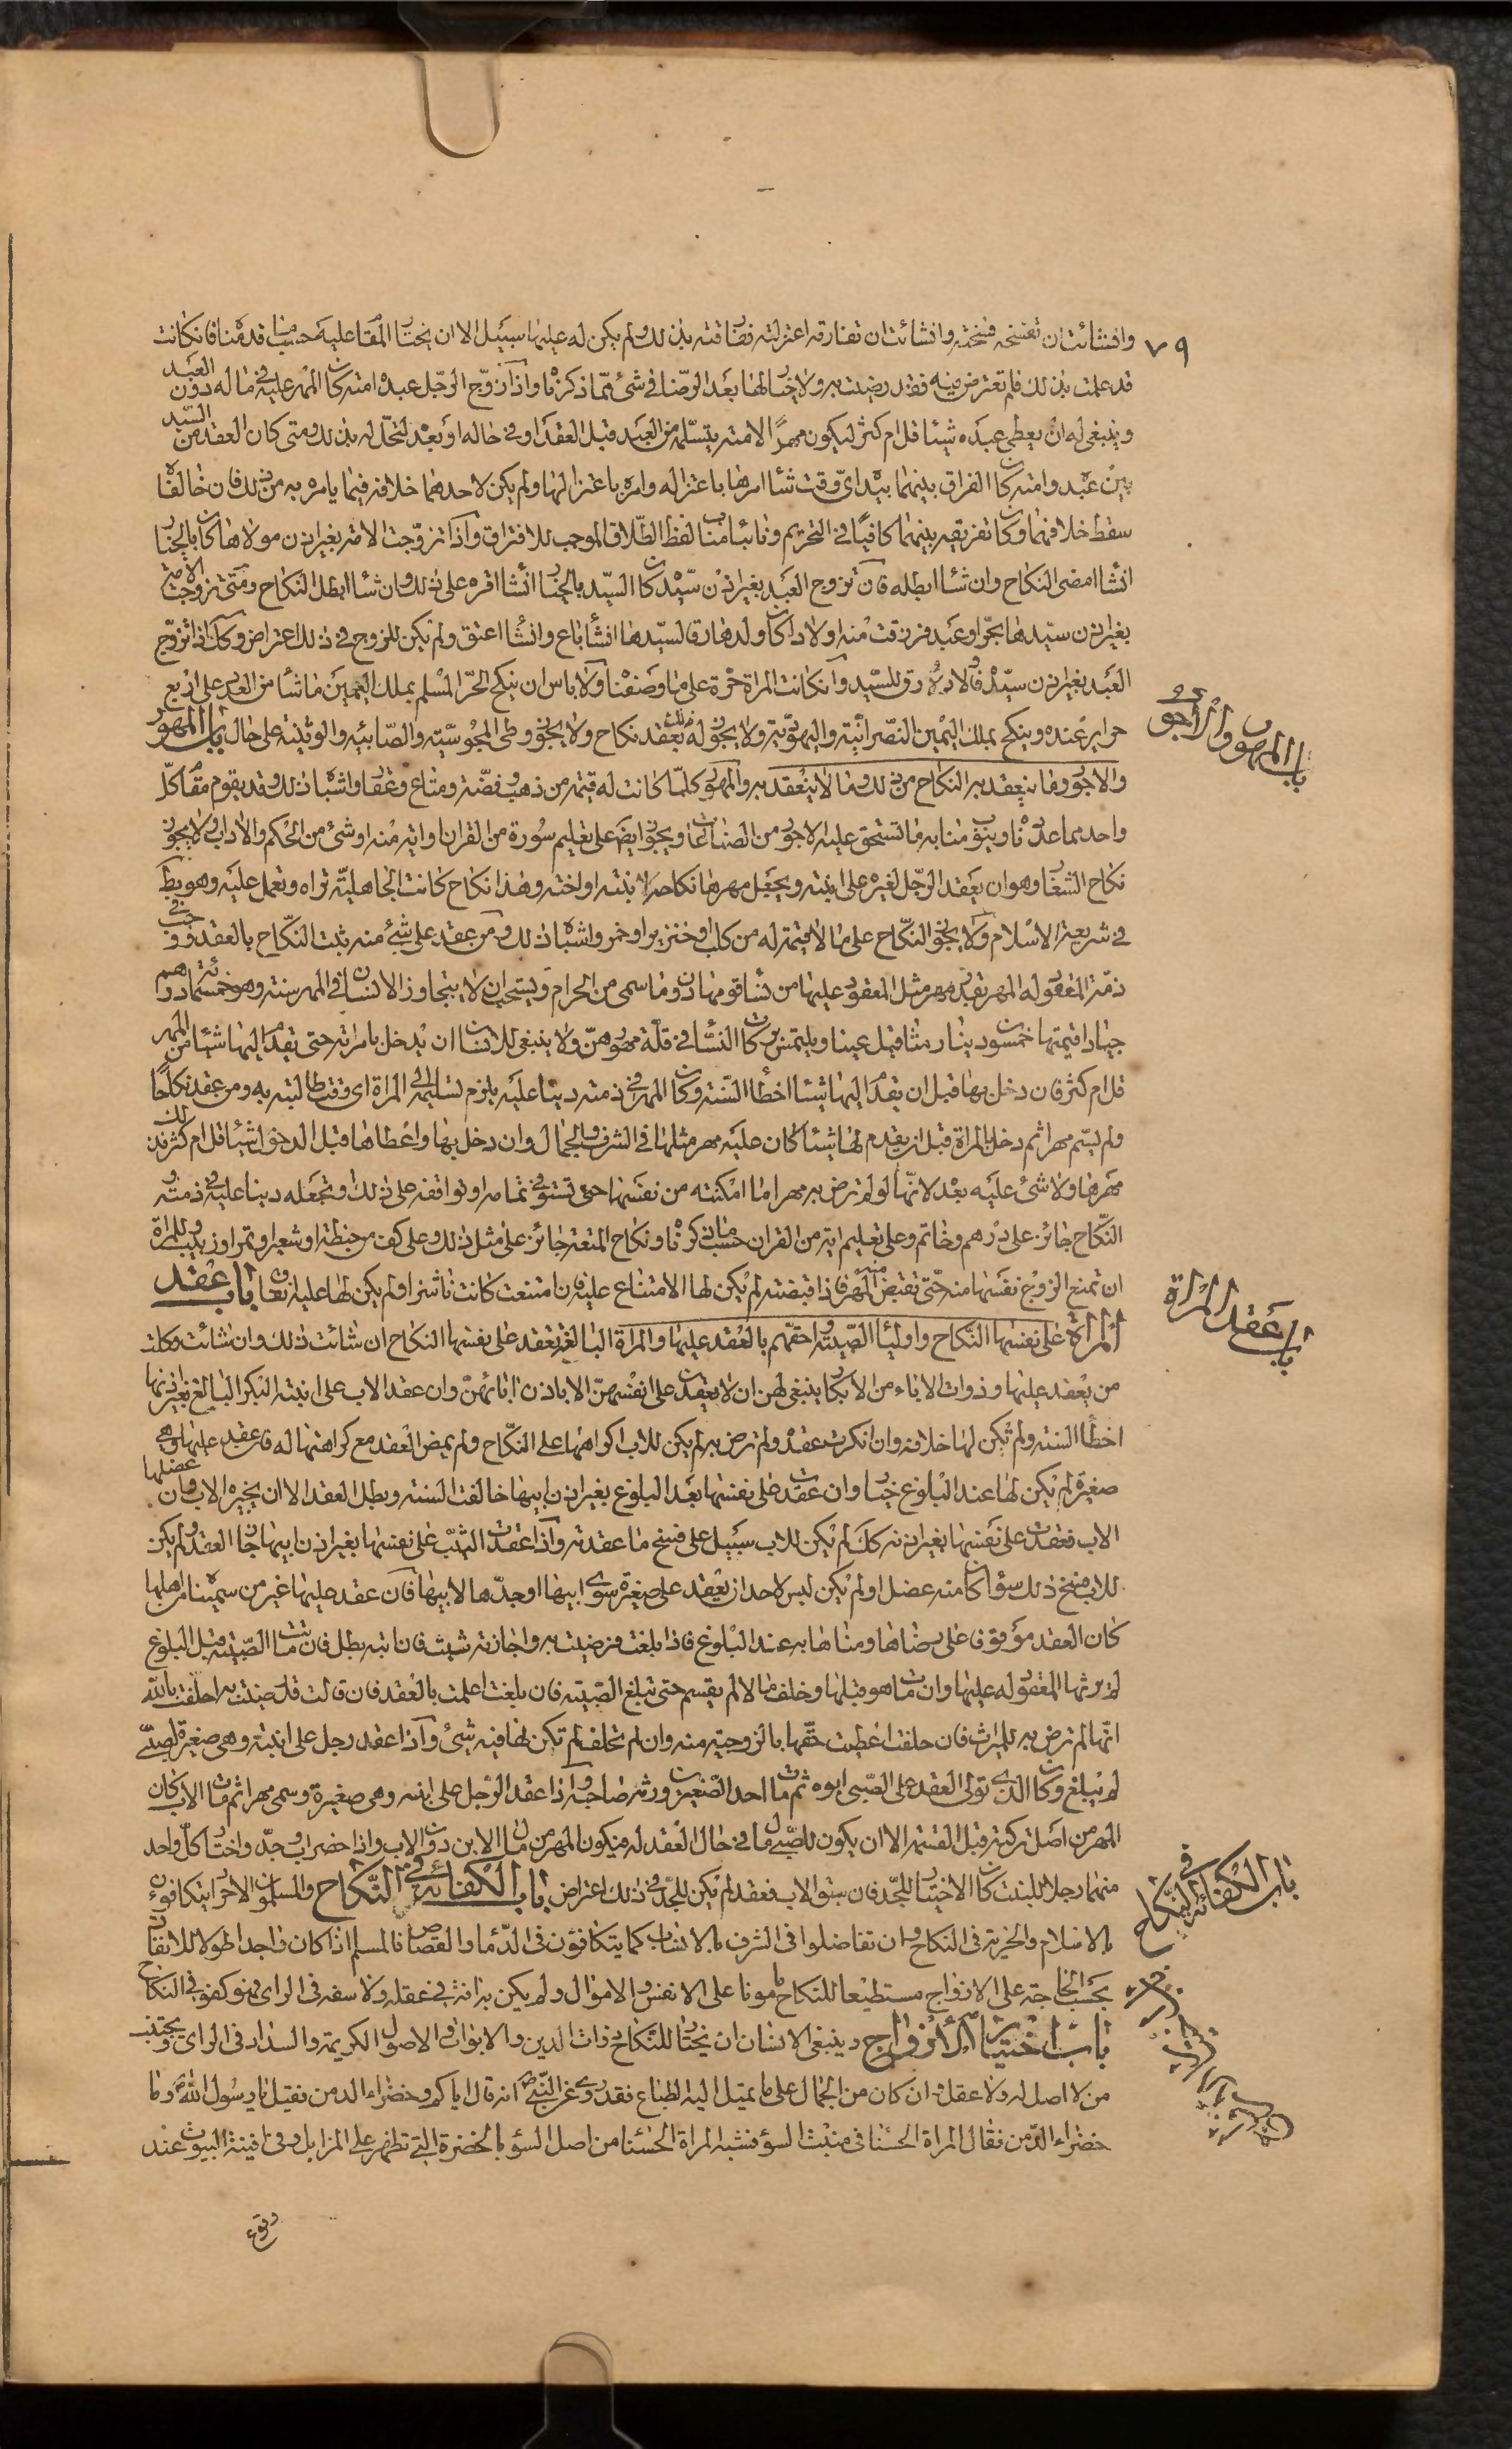 ٧٩
وانشائت ان تفسخه فسخته وانشائت ان تفارقه اعتزلته ففارقته بذلك ولم يكن له عليها سبيل الا ان يختار المقام عليه حسب ما قدمناه فان كانت
قد علمت بذلك فلم تعترض فيه فقد رضيت به ولا خيار لها بعد الرضا في شئ مما ذكرناه واذا زوج الرجل عبده امته كان المهر عليه في ماله دون العبد
وينبغي له ان يعطي عبده شيئا قل ام كثر ليكون مهرا لامته يتسلمه من العبد قبل العقد او في حاله او بعد لتحل له بذلك ومتى كان العقد من السيد
بين عبده وامته كان الفراق بينهما بيده اي وقت شاء امرها باعتزاله وامره باعتزالها ولم يكن لاحدهما خلافه فيما يامره به من ذلك فان خالفاه
سقط خلافهما وكان تفريقه بينهما كافيا في التحريم ونائبا مناب لفظ الطلاق الموجب للافتراق واذا تزوجت الامة بغير اذن مولاها كان بالخيار
انشاء امضى النكاح وان شاء ابطله فان تزوج العبد بغير اذن سيده كان السيد بالخيار انشاء اقره على ذلك وان شاء ابطل النكاح ومتى تزوجت الامة
بغير اذن سيدها بحر او عبد فرزقت منه اولادا كان ولدها رقا لسيدها انشاء باع وانشاء اعتق ولم يكن للزوج في ذلك اعتراض وكك اذا تزوج
العبد بغير اذن سيده فالاولاد رق للسيد وان كانت المراة حرة على ما وصفناه ولا باس ان ينكح الحر المسلم بملك اليمين ما شاء من العدد على اربع
حراير عنده وينكح بملك اليمين النصرانية واليهودية ولا يجوز له ذلك بعقد نكاح ولا يجوز وطى المجوسية والصابئيه والوثنية على حال باب المهور
والاجور وما ينعقد به النكاح من ذلك وما لا ينعقد به والمهور كلما كانت له قيمة من ذهب وفضة ومتاع وعقار واشباه ذلك وقد يقوم مقام كل
واحد مما عددناه وينوب منابه ما تستحق عليه الاجور من الصناعات ويجوز ايضا على تعليم سورة من القران واية منه او شئ من الحكم والاداب ولا يجوز
نكاح الشغار وهو ان يعقد الرجل لغيره على ابنته ويجعل مهرها نكاحه لابنته او اخته وهذا نكاح كانت الجاهلية تراه وتعمل عليه وهو بط
في شريعة الاسلام ولا يجوز النكاح على ما لا قيمة له من كلب او خنزير او خمر واشباه ذلك ومن عقد على شئ منه يثبت النكاح بالعقد ووجب في
ذمة المعقود له المهر بقدر مهر مثل المعقود عليها من نساء قومها دون ما سمى من الحرام ويستحب ان لا يتجاوز الانسان في المهر سنته وهو خمسمائة درهم
جيادا قيمتها خمسون دينارا مثاقيل عينا ويلتمس بركات النساء في قلة مهورهن ولا ينبغي للانسان ان يدخل بامراته حتى يقدم اليها شيئا من المهر
قل ام كثر فان دخل بها قبل ان يقدم اليها شيئا اخطا السنة وكان المهر في ذمته دينا عليه يلزم تسليمه الى المراة اي وقت طالبته به ومن عقد نكاحا
ولم يسم مهرا ثم دخل بالمراة قبل ان يقدم لها شيئا كان عليه مهر مثلها في الشرف والجمال وان دخل بها واعطاها قبل الدخول شيئا قل ام كثر فذلك
مهرها ولا شئ عليه بعد لانها لو لم ترض به مهرا ما امكنته من نفسها حتى تستوفي تمامه او توافقه على ذلك وتجعله دينا عليه في ذمته و
النكاح جائز على درهم وخاتم وعلى تعليم اية من القران حسب ما ذكرناه ونكاح المتعة جائز على مثل ذلك وعلى كف من حنطة او شعير او تمر او زبيب وللمراة
ان تمنع الزوج نفسها منه حتى تقبض منه المهر فاذا قبضته لم يكن لها الامتناع عليه فان امتنعت كانت ناشزا ولم يكن لها عليه انفاق باب عقد
المراة على نفسها النكاح واولياء الصبية واحقهم بالعقد عليها والمراة البالغة تعقد على نفسها النكاح ان شائت ذلك وان شائت وكلت
من يعقد عليها وذوات الاباء من الابكار ينبغي لهن ان لا يعقدن على انفسهن الا باذن ابائهن وان عقد الاب على ابنته البكر البالغ بغير اذنها
اخطا السنة ولم يكن لها خلافه وان انكرت عقده ولم ترض به لم يكن للاب اكراهها على النكاح ولم يمض العقد مع كراهتها له فان عقد عليها وهى
صغيرة لم يكن لها عند البلوغ خيار وان عقدت على نفسها بعد البلوغ بغير اذن ابيها خالفت السنة وبطل العقد الا ان يجيزه الاب وان عضلها
الاب فعقدت على نفسها بغير اذنه كك لم يكن للاب سبيل على فسخ ما عقدته واذا عقدت الثيب على نفسها بغير اذن ابيها جاز العقد ولم يكن
للاب فسخ ذلك سواء كان منه عضل او لم يكن ليس لاحد ان يعقد على صغيرة سوى ابيها او جدها لابيها فان عقد عليها غير من سميناه من اهلها
كان العقد موقوفا على رضاها ومناها به عند البلوغ فاذا بلغت فرضيت به واجازته ثبت فان ابته بطل فان ماتت الصبية قبل البلوغ
لم يرثها المعقود له عليها وان مات هو قبلها وخلف مالا لم يقسم حتى تبلغ الصبية فان بلغت اعلمت بالعقد فان قالت قد رضيت به احلفت بالله
انها لم ترض به للميراث فان حلفت اعطيت حقها بالزوجية منه وان لم تحلف لم تكن لها فيه شئ واذا عقد رجل على ابنته وهى صغيرة لصبى
لم يبلغ وكان الذى تولى العقد على الصبي ابوه ثم مات احد الصغيرين ورثه صاحبه واذا عقد الرجل على ابنه وهى صغيرة وسمى مهرا ثم مات الاب كان
المهر من اصل تركته قبل القسمة الا ان يكون للصبي مال في حال العقد له فيكون المهر من مال الابن دون الاب واذا حضر اب وجد واختار كل واحد
منهما رجلا للبنت كان الاختيار للجد فان سبق الاب فعقد لم يكن للجد في ذلك اعتراض باب الكفائة في النكاح والمسلمون الاحرار يتكافوءن
بالاسلام والحرية في النكاح وان تفاضلوا في الشرف بالانساب كما يتكافؤن في الدماء والقصاص فالمسلم اذا كان واجدا طولا للانفاق
بحسب الحاجة على الازواج مستطيعا للنكاح مامونا على الانفس والاموال ولم يكن به افة في عقله ولا سفه في الراى فهو كفو في النكاح
باب اختيار الازواج وينبغي الانسان ان يختار للنكاح ذوات الدين والابوات والاصول الكريمة والسداد في الراى ويجتنب
من لا اصل له ولا عقل وان كان من الجمال على ما يميل اليه الطباع فقد روى عن النبي ص انه قال اياكم وخضراء الدمن فقيل يا رسول الله ص وما
خضراء الدمن فقال المراة الحسناء في منبت السوء فشبه المراة الحسناء من اصل السوء بالخضرة التي تظهر على المزابل وفي افنية البيوت عند
باب المهور والاجور
باب عقد المراة
باب الكفائة في النكاح